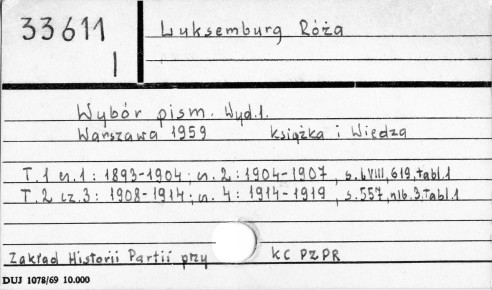 33611
I
Luksemburg Róża
Wybór pism. Wyd. 1.
Warszawa 1959 Książka i Wiedza
T. 1 cz. 1: 1893-1904; cz. 2: 1904-1907, s. LVIII, 619, tabl. 1
T. 2 cz. 3: 1908-1914; cz. 4: 1914-1919, s. 557, nlb. 3. tabl. 1
Zakład Historii Partii przy KC PZPR
DUJ 1078/69 10.000